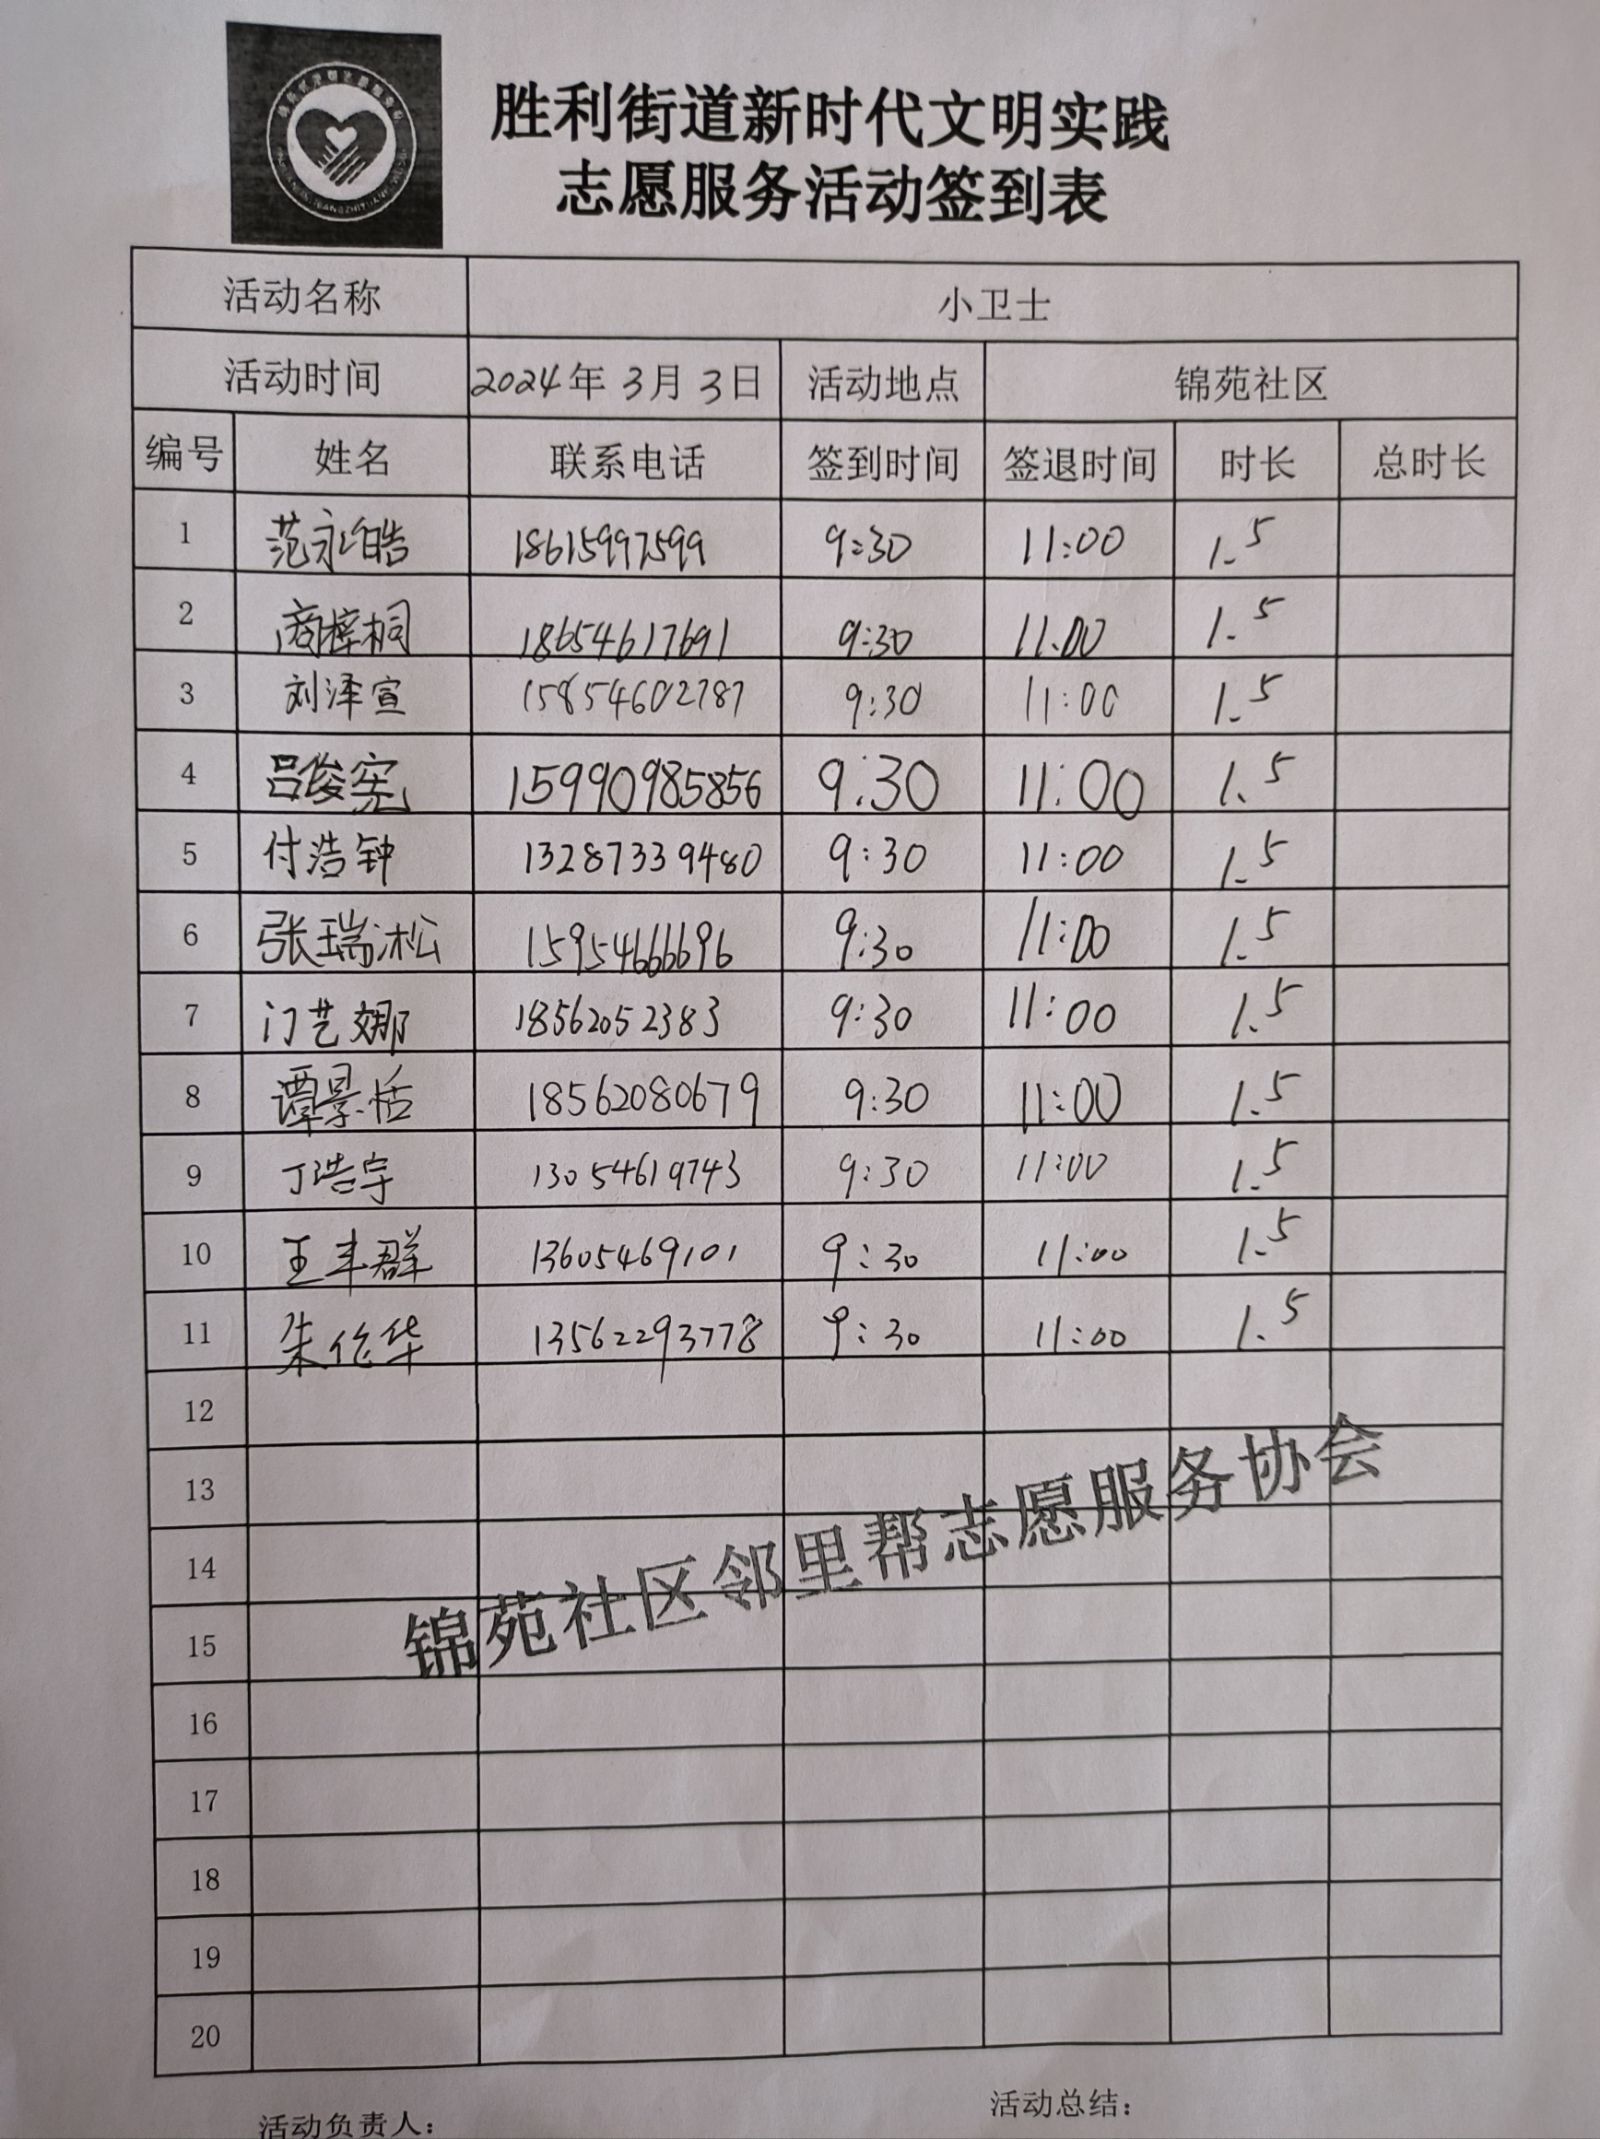 胜利街道新时代文明实践
志愿服务活动签到表
活动名称 小卫士
活动时间 2024年 3月 3日 活动地点 锦苑社区
编号 姓名 联系电话 签到时间 签退时间 时长 总时长
1 范永皓 18615997599 9:30 11:00 1.5
2 商梓桐 18654617691 9:30 11.00 1.5
3 刘泽宣 15854602787 9:30 11:00 1.5
4 吕俊宪 15990985856 9:30 11:00 1.5
5 付浩钟 13287339480 9:30 11:00 1.5
6 张瑞沐松 15954666696 9:30 11:00 1.5
7 门艺娜 18562052383 9:30 11:00 1.5
8 谭景恬 18562080679 9:30 11:00 1.5
9 丁浩宇 13054619743 9:30 11:00 1.5
10 王丰群 13605469101 9:30 11:00 1.5
11 朱作华 13562293778 9:30 11:00 1.5
12
13
14
15
锦苑社区邻里帮志愿服务协会
16
17
18
19
20
活动负责人： 活动总结：